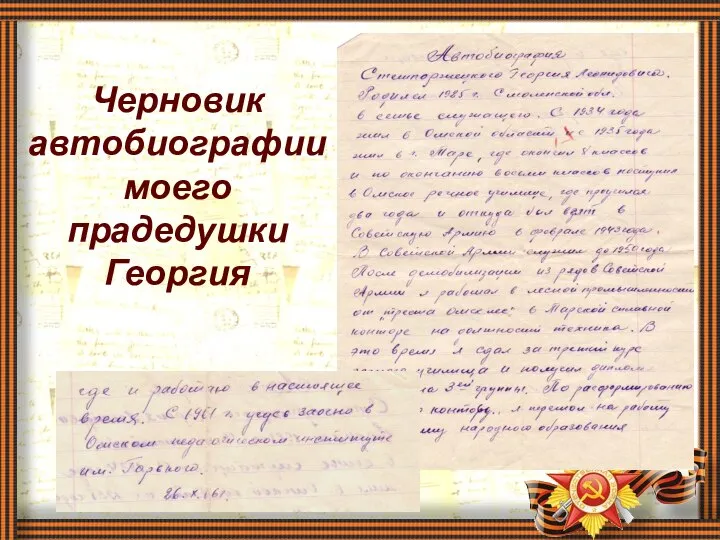 Черновик
автобиографии
моего
прадедушки
Георгия
Автобиография
Георгия Леонидовича.
Родился 1925 г. Смоленской обл.
в семье служащего. С 1934 года
жил в Омской области, с 1935 года
жил в г. Таре, где окончил 8 классов
и по окончанию восьми классов поступил
в Омское речное училище, где проучился
два года и откуда был взят в
Советскую Армию в феврале 1943 года.
В Советской Армии служил до 1950 года
После демобилизации из рядов Советской
Армии я работал в лесной промышленности
от треста в Тарской сплавной
конторе на должности техника. В
это время я сдал за третий курс
училища и получил диплом
3ей группы. По расформированию
контору.. я перешол на работу
му народного образования
где и работаю в настоящее
время. С 1961 г. учусь заочно в
Омском педагогическом институте
им. Горького.
26.X.61г.